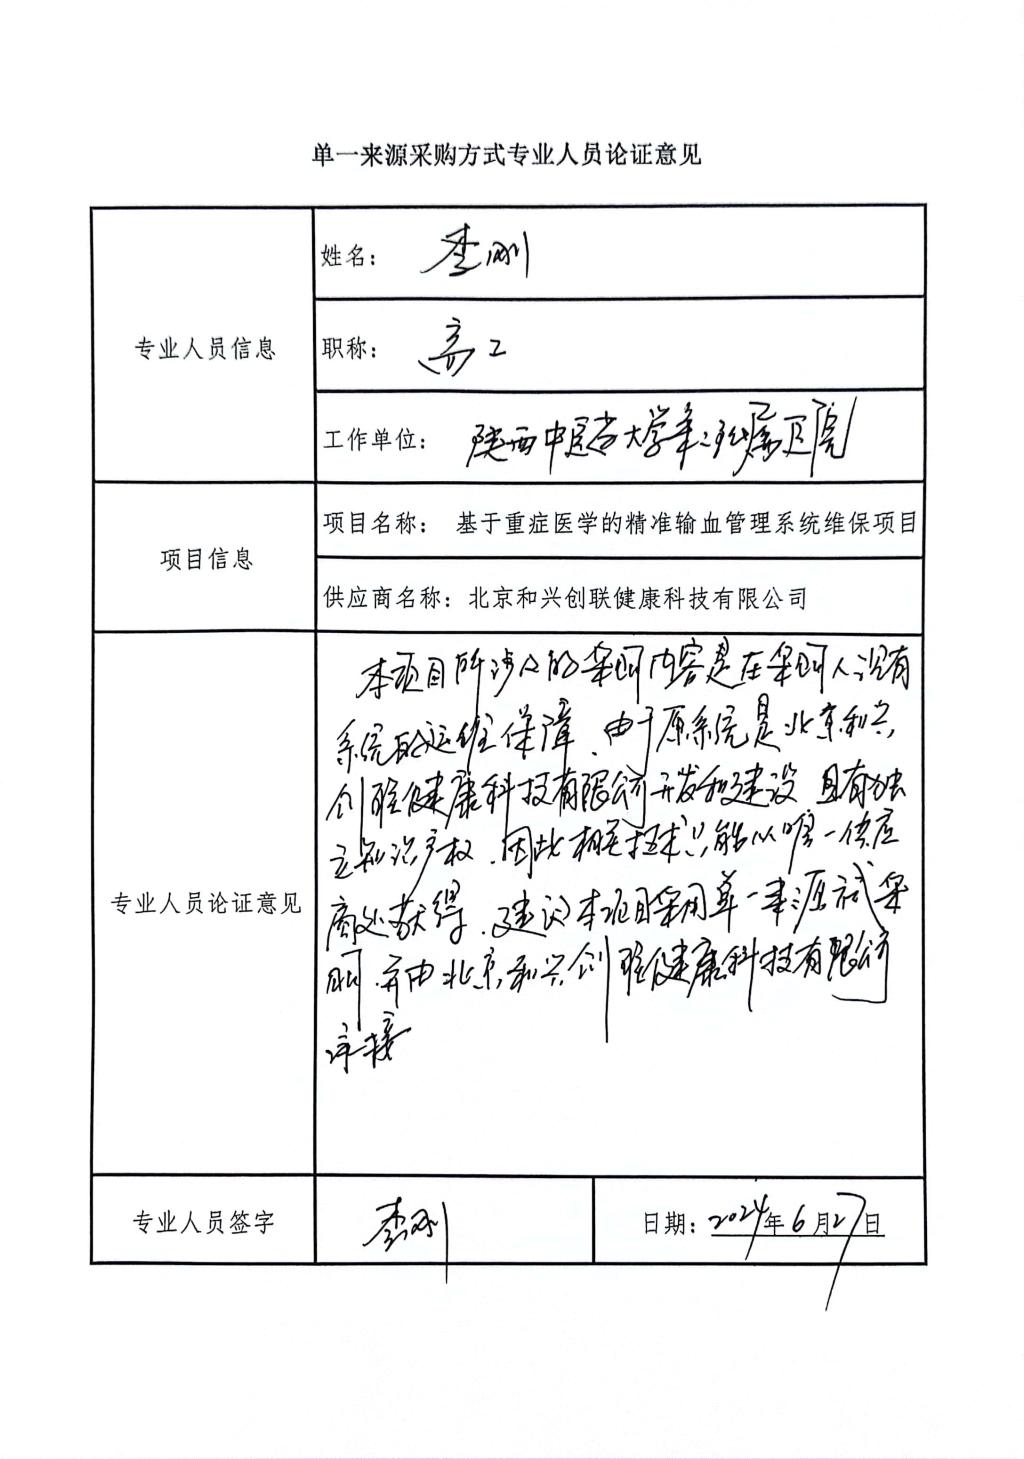 单一来源采购方式专业人员论证意见
专业人员信息
姓名： 李刚
职称： 高工
工作单位： 陕西中医药大学第二附属医院
项目信息
项目名称： 基于重症医学的精准输血管理系统维保项目
供应商名称：北京和兴创联健康科技有限公司
专业人员论证意见
本项目所涉及的采购内容是在采购人没有
系统的运维保障、由于原系统是北京和兴
创联健康科技有限公司开发和建设 具有独
立知识产权、因此相关技术只能从唯一供应
商处获得、建议本项目采用单一来源式采
购、并由北京和兴创联健康科技有限公司
承接
专业人员签字
李刚
日期：2024年6月27日